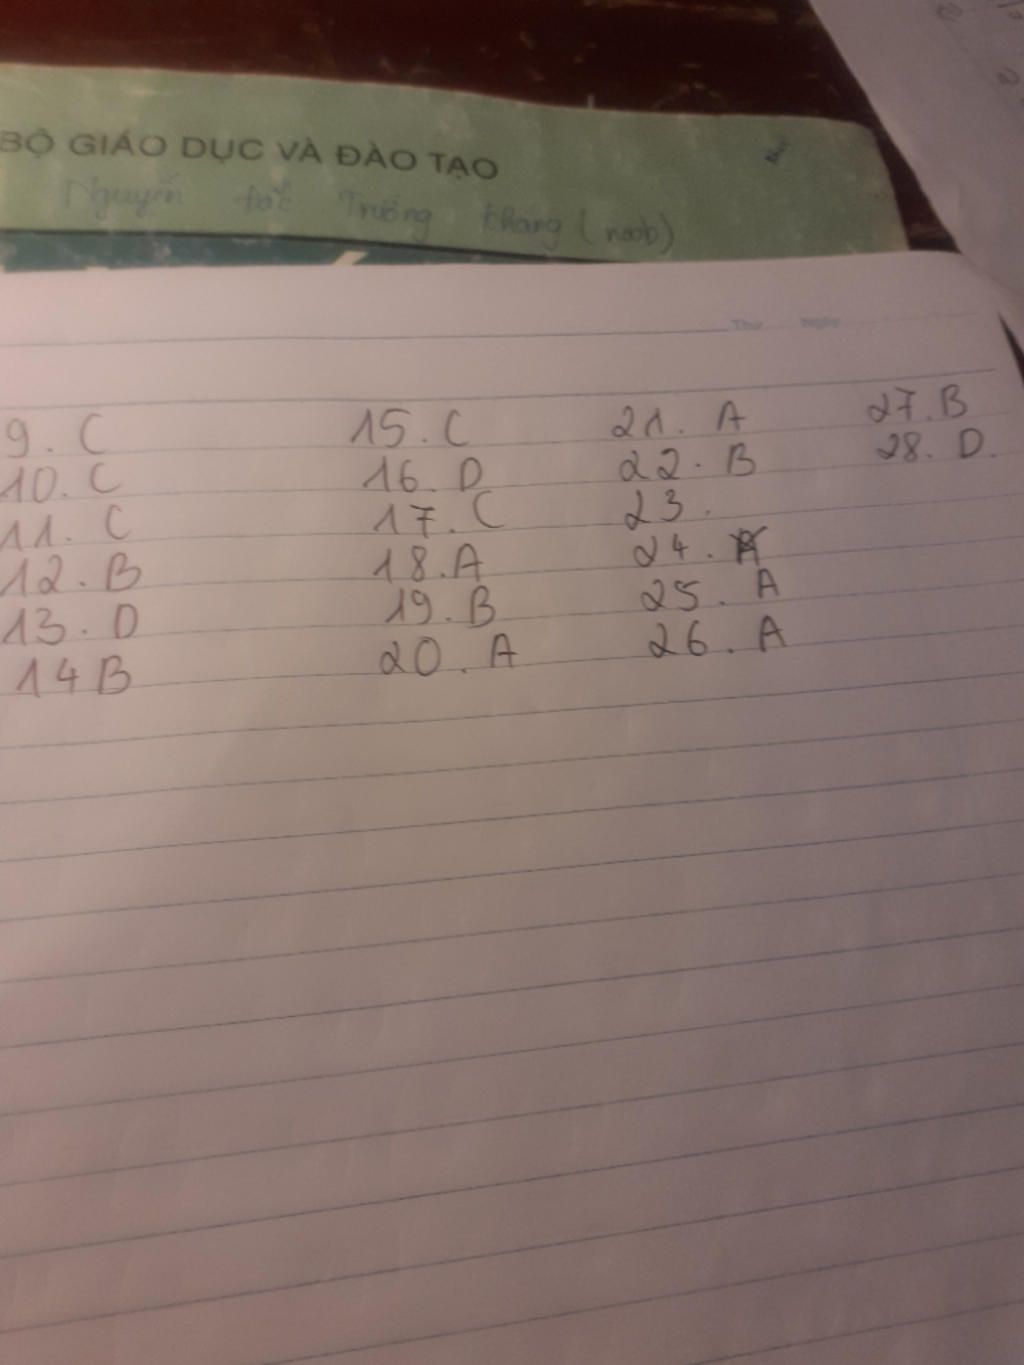 BỘ GIÁO DỤC VÀ ĐÀO TẠO
Nguyễn Đắc Trường Khang (noob)
Thứ Ngày
9. C 15. C 21. A 27. B
10. C 16. D 22. B 28. D.
11. C 17. C 23.
12. B 18. A 24. A
13. D 19. B 25. A
14 B 20. A 26. A